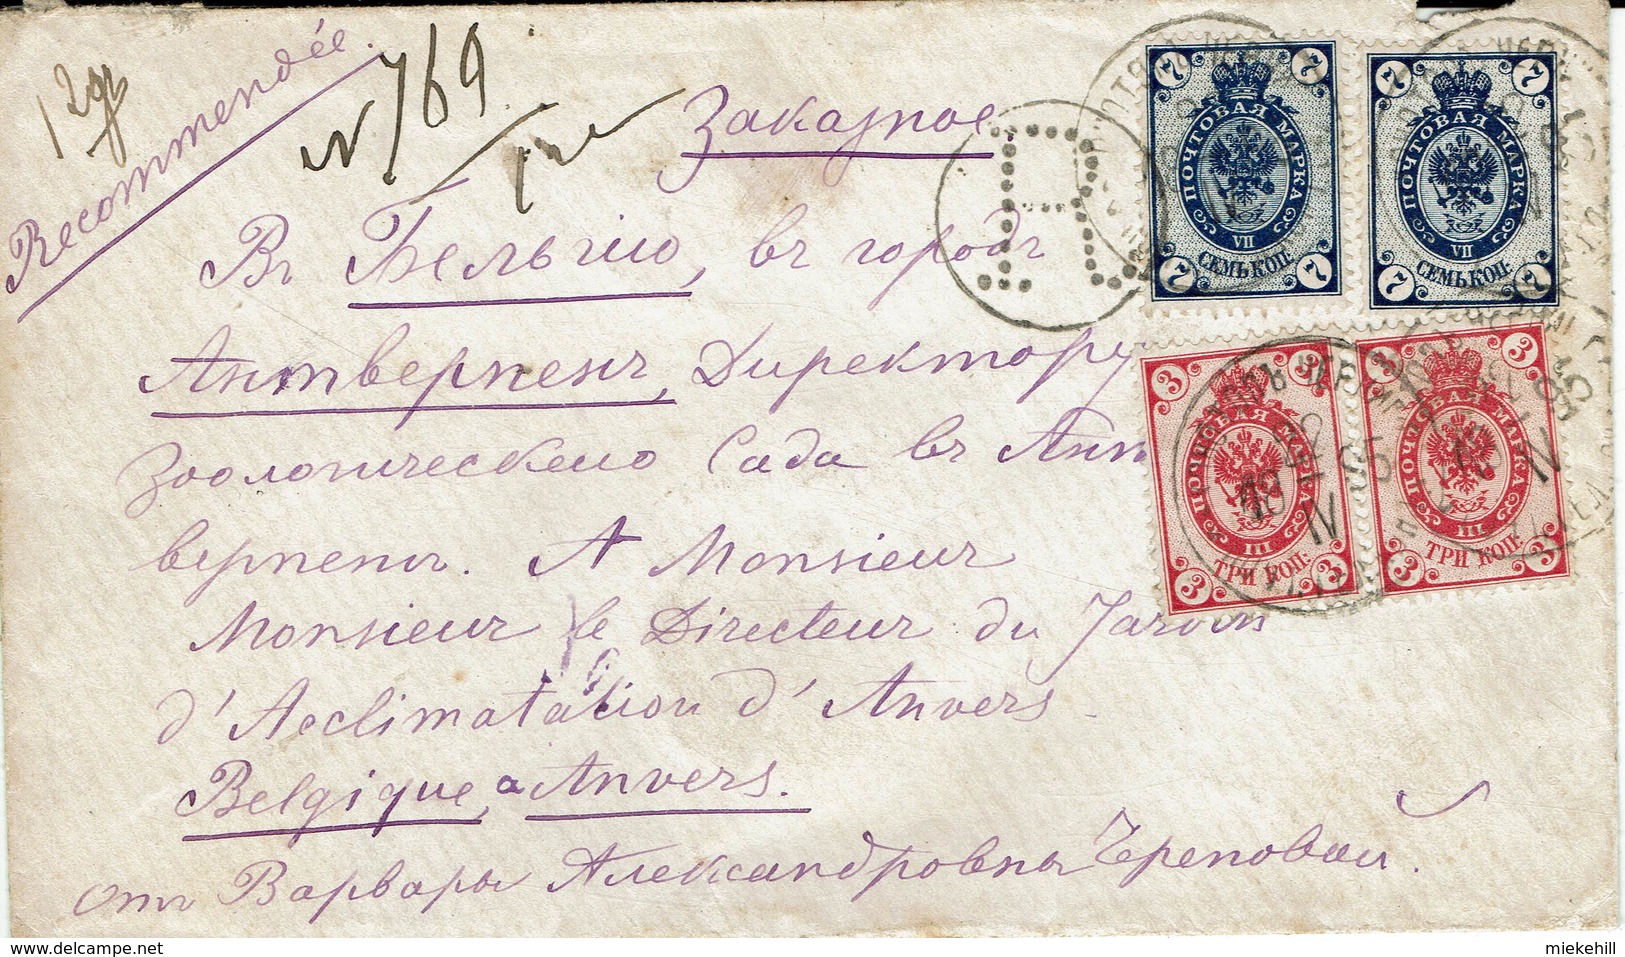 Recommendée.
12gr
N 769
Заказное.
Въ Бельгию, въ городъ
Антверпенъ, Директору
зоологическаго Сада въ Ант
верпенъ. A Monsieur
Monsieur le Directeur du Jardin
d'Acclimatation d'Anvers
Belgique, a Anvers.
отъ Варвары Александровны
ПОЧТОВАЯ МАРКА
7 7 7 7
VII
СЕМЬ КОП.
ПОЧТОВАЯ МАРКА
7 7 7 7
VII
СЕМЬ КОП.
ПОЧТОВАЯ МАРКА
3 3 3 3
III
ТРИ КОП.
ПОЧТОВАЯ МАРКА
3 3 3 3
III
ТРИ КОП.
R
delcampe.net
miekehill